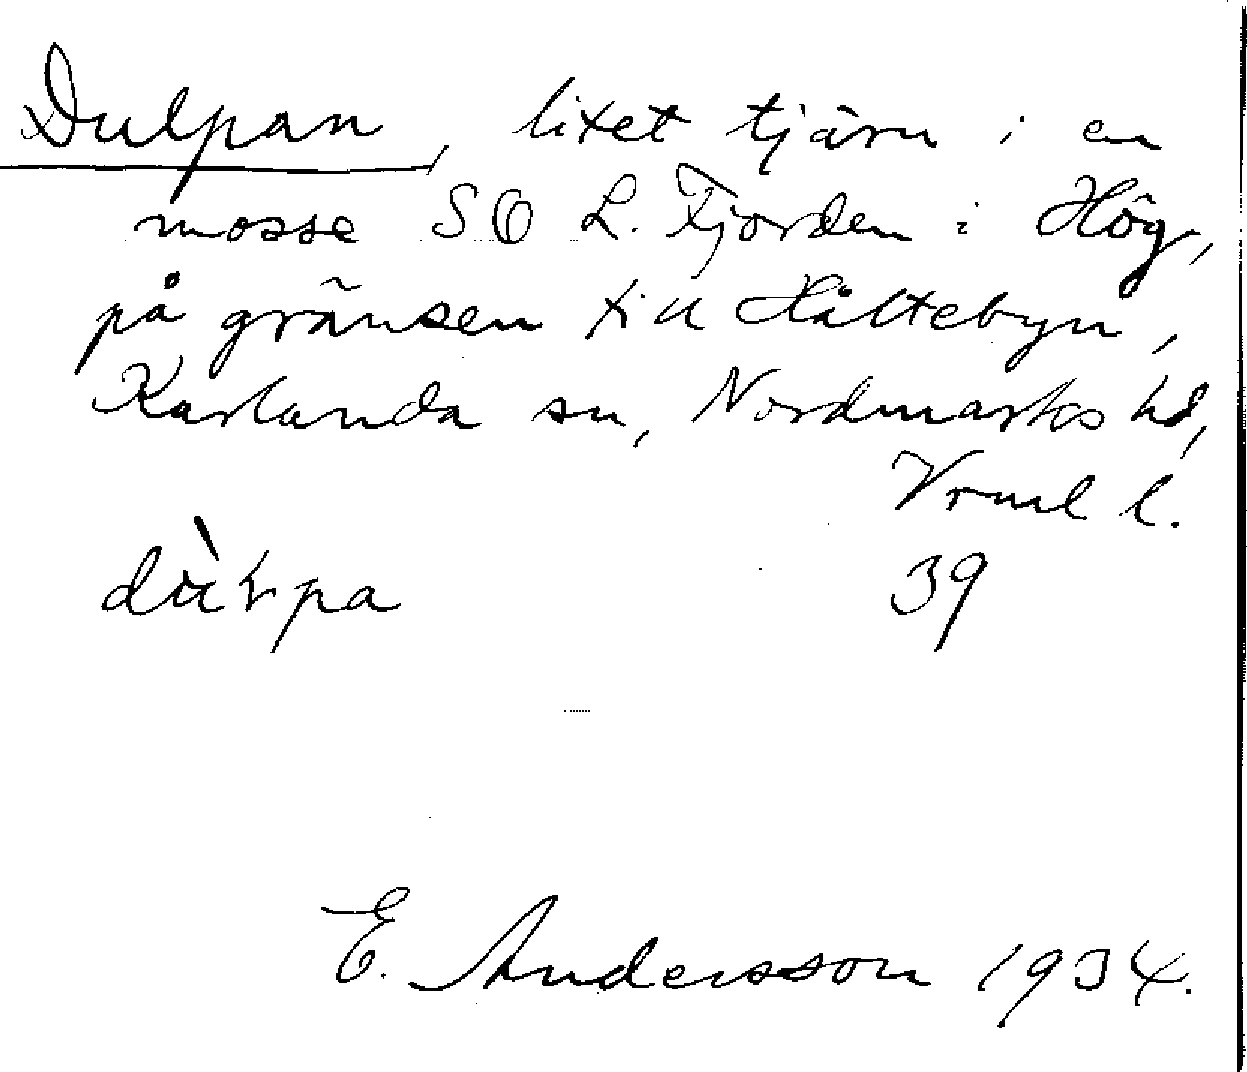 Dulpan, litet tjärn i en
mosse SO L. Fjorden i Hög,
på gränsen till Hältebyn,
Karlanda sn, Nordmarks hd,
Vrml l.
39
E. Andersson 1934.